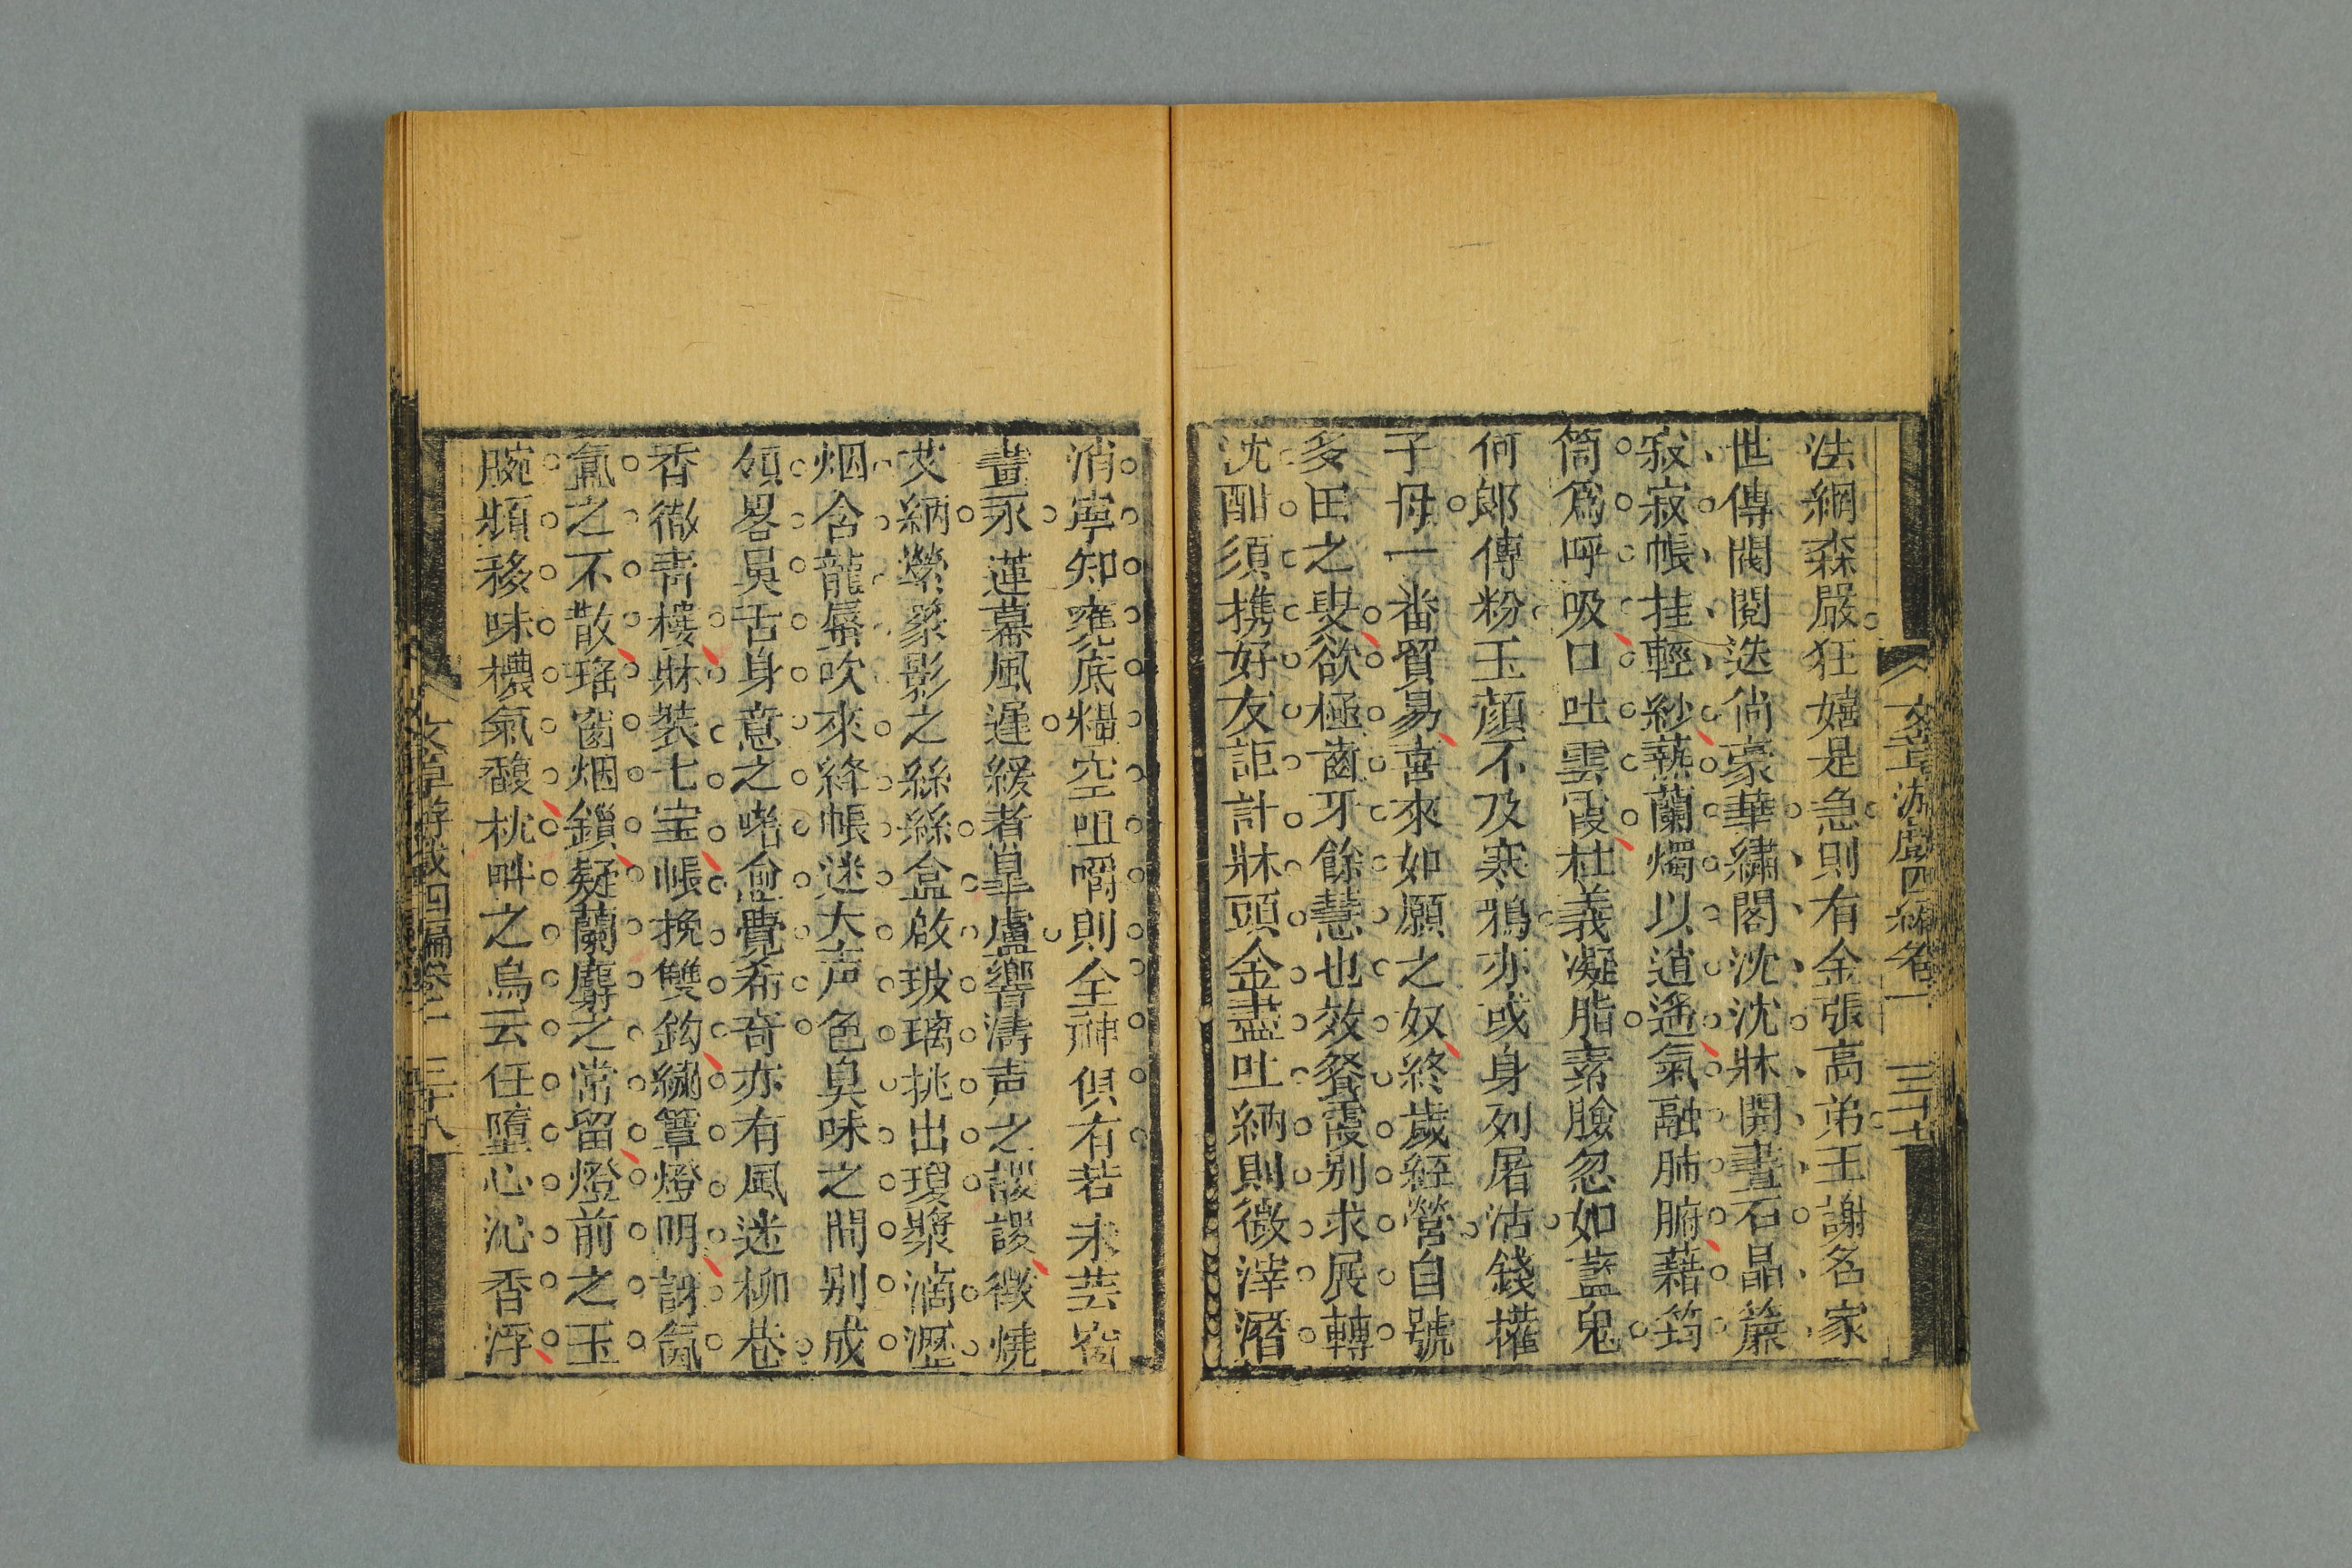 文章游戲四編卷一 三十七
法網森嚴狂嬉是急則有金張高弟王謝名家
世傳閥閱迭倘豪華繡閣沈沈牀開晝石晶簾
寂寂帳挂輕紗爇蘭燭以逍遙氣融肺腑藉筠
筒爲呼吸口吐雲霞杜義凝脂素臉忽如藍鬼
何郎傅粉玉顏不及寒鴉亦或身列屠沽錢權
子母一番貿易喜來如願之奴終歲經營自號
多田之叟欲極齒牙餘慧也效餐霞别求展轉
沈酣須携好友詎計牀頭金盡吐納則微滓潛
消寧知甕底糧空咀嚼則全神俱有若未芸窗
晝永蓮幕風遲緩者臯盧響濤声之謖謖微燒
艾納縈篆影之絲絲盒啟玻璃挑出瓊漿滴瀝
烟含龍唇吹來絳帳迷大声色臭味之間别成
領畧吳舌身意之嗜俞覺希奇亦有風迷柳巷
香徹靑樓牀裝七宝帳挽雙鈎繡簟燈明訝氤
氳之不散瑤窗烟鎖疑蘭麝之常留燈前之玉
腕頻移味檂氣馥枕畔之烏云任墮心沁香浮
文章游戲四編卷一 三十八